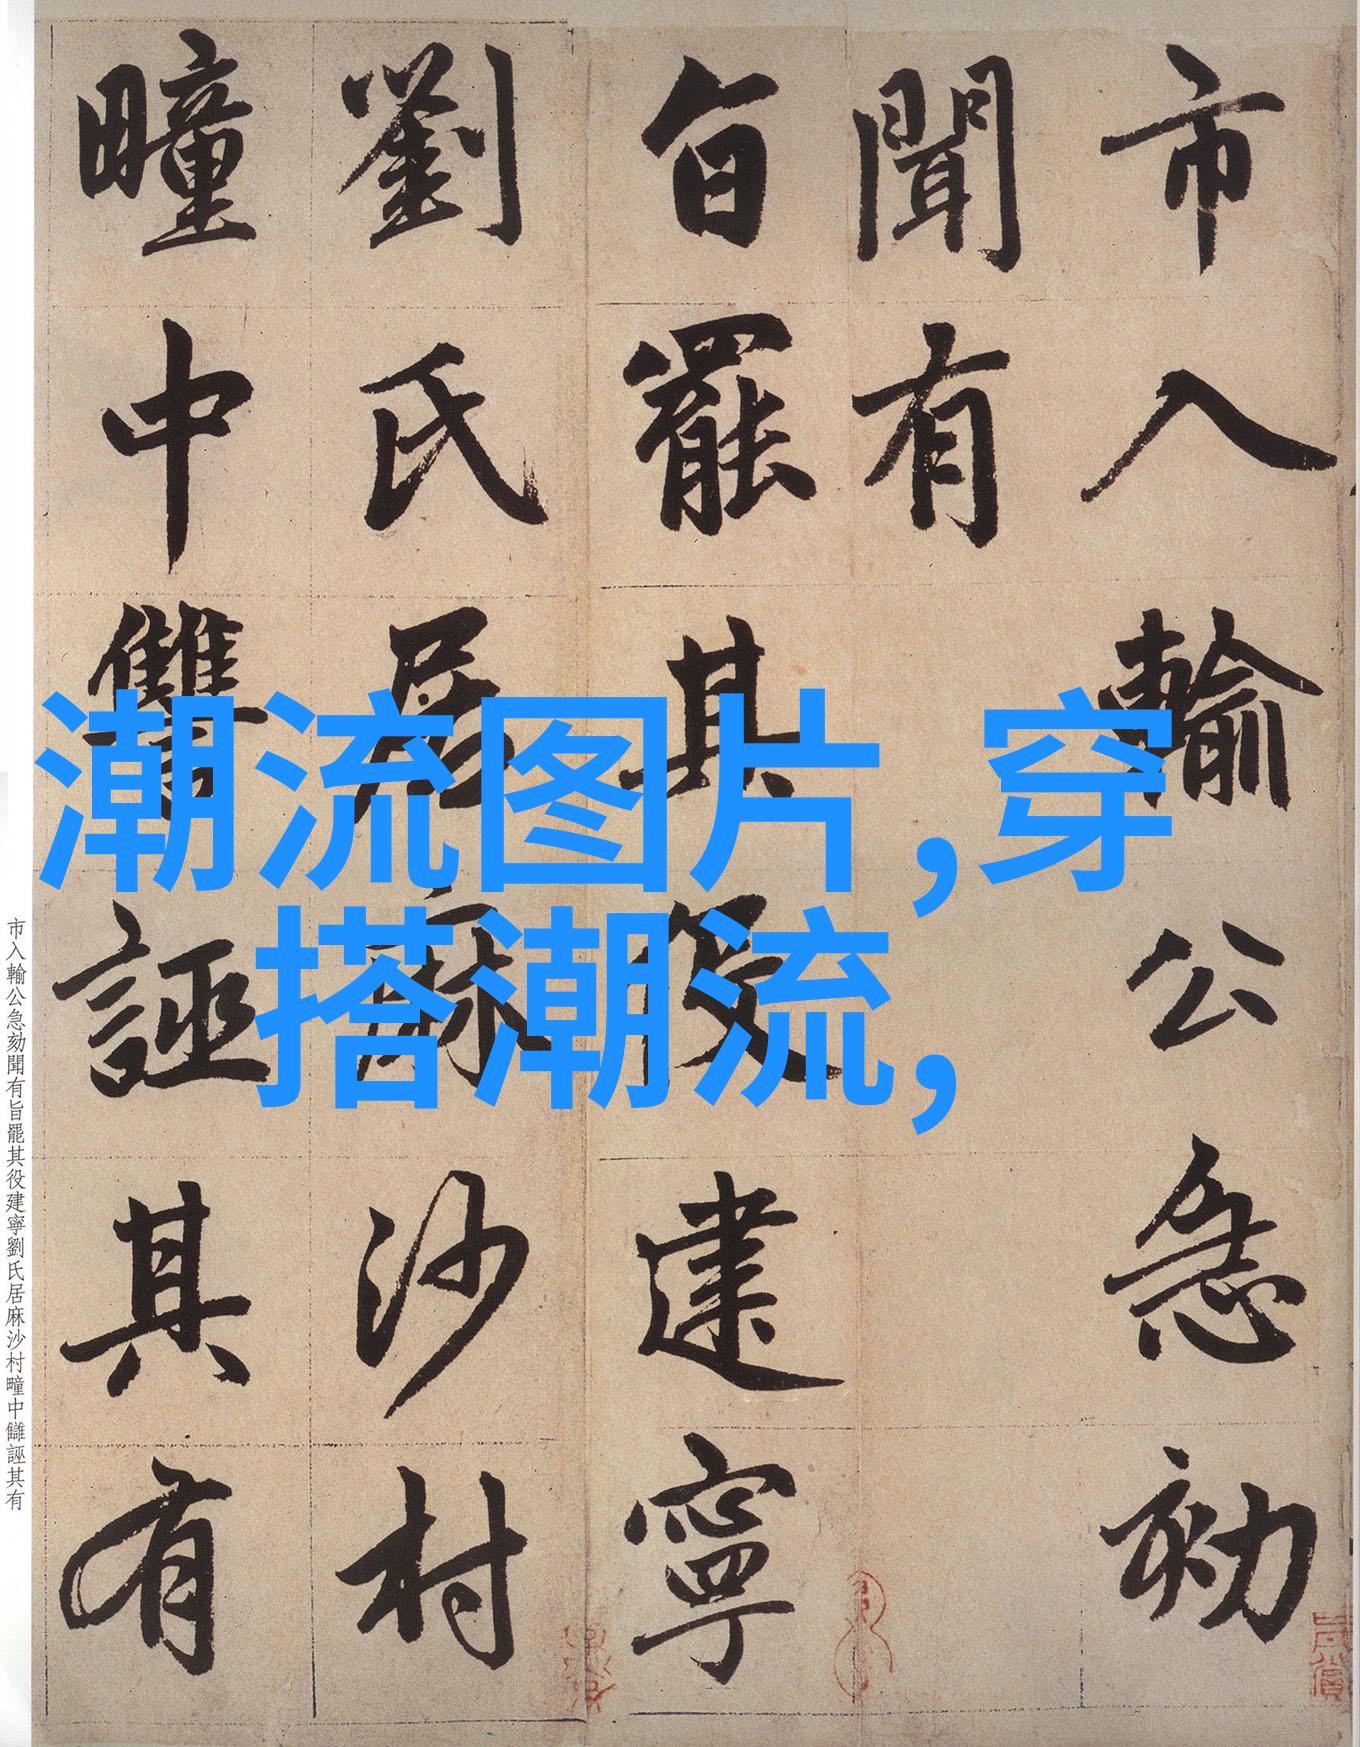 市入輸公急劾
聞有
旨罷其役建寧
劉氏居麻沙村
疃中讎誣其有
潮流图片,穿
搭潮流,
市入輸公急劾聞有旨罷其役建寧劉氏居麻沙村疃中讎誣其有